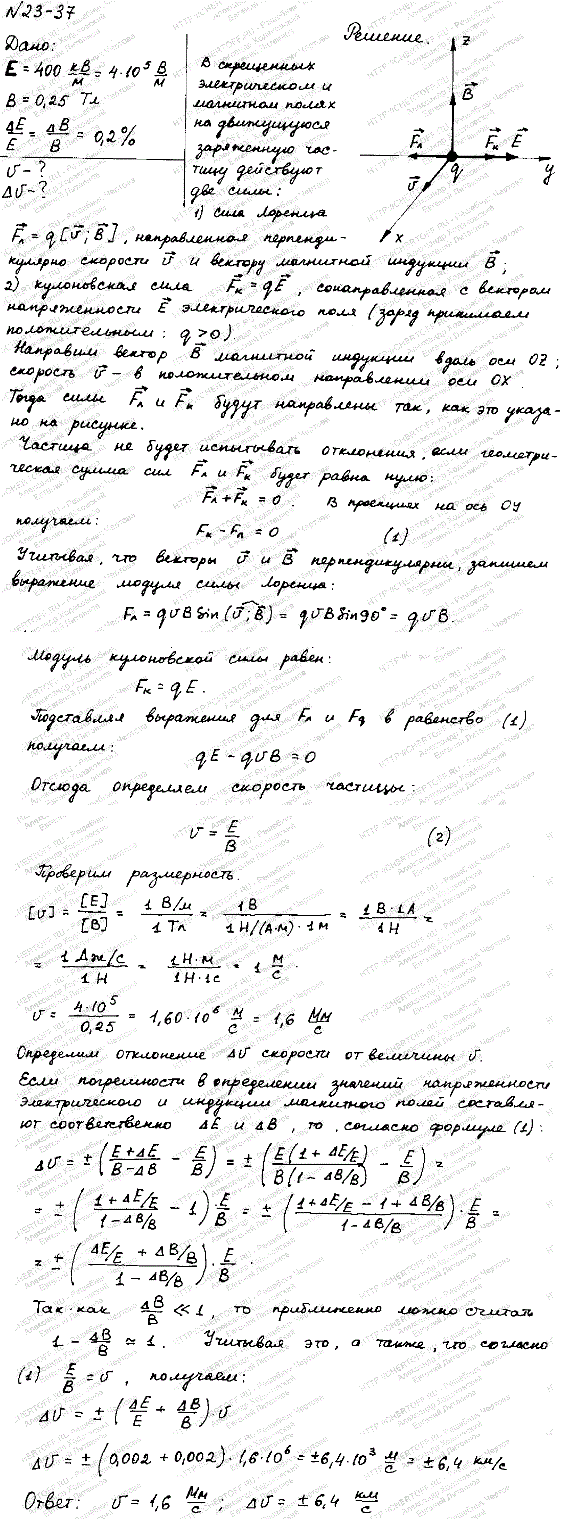 N 23-37
Дано:
E = 400 кВ/м = 4·10⁵ В/м
B = 0,25 Тл
ΔE/E = ΔB/B = 0,2%
v - ?
Δv - ?
Решение.
В скрещенных
электрическом и
магнитном полях
на движущуюся
заряженную час-
тицу действуют
две силы:
1) сила Лоренца
z
B⃗
F⃗л F⃗к E⃗
v⃗ q y
x
F⃗л = q[v⃗; B⃗], направленная перпенди-
кулярно скорости v⃗ и вектору магнитной индукции B⃗;
2) кулоновская сила F⃗к = qE⃗, сонаправленная с вектором
напряженности E⃗ электрического поля (заряд принимаем
положительным: q > 0)
Направим вектор B⃗ магнитной индукции вдоль оси OZ;
скорость v⃗ - в положительном направлении оси OX.
Тогда силы F⃗л и F⃗к будут направлены так, как это указа-
но на рисунке.
Частица не будет испытывать отклонения, если геометри-
ческая сумма сил F⃗л и F⃗к будет равна нулю:
F⃗л + F⃗к = 0. В проекциях на ось OY
получаем:
Fк - Fл = 0 (1)
Учитывая, что векторы v⃗ и B⃗ перпендикулярны, запишем
выражение модуля силы Лоренца:
Fл = qvB sin(v⃗; B⃗) = qvB sin90° = qvB.
Модуль кулоновской силы равен:
Fк = qE.
Подставляя выражения для Fл и Fq в равенство (1)
получаем:
qE - qvB = 0
Отсюда определяем скорость частицы:
v = E/B (2)
Проверим размерность.
[v] = [E]/[B] = 1 В/м / 1 Тл = 1В / 1Н/(А·м)·1м = 1В·1А / 1Н =
= 1 Дж/с / 1Н = 1Н·м / 1Н·1с = 1 м/с.
v = 4·10⁵/0,25 = 1,60·10⁶ м/с = 1,6 Мм/с
Определим отклонение Δv скорости от величины v.
Если погрешности в определении значений напряженности
электрического и индукции магнитного полей составля-
ют соответственно ΔE и ΔB, то, согласно формуле (1):
Δv = ±((E+ΔE)/(B-ΔB) - E/B) = ±(E(1+ΔE/E)/B(1-ΔB/B) - E/B) =
= ±((1+ΔE/E)/(1-ΔB/B) - 1)·E/B = ±((1+ΔE/E - 1 + ΔB/B)/(1-ΔB/B))·E/B =
= ±((ΔE/E + ΔB/B)/(1 - ΔB/B))·E/B.
Так как ΔB/B ≪ 1, то приближенно можно считать
1 - ΔB/B ≈ 1. Учитывая это, а также, что согласно
(1) E/B = v, получаем:
Δv = ±(ΔE/E + ΔB/B)v
Δv = ±(0,002 + 0,002)·1,6·10⁶ = ±6,4·10³ м/с = ±6,4 км/с
Ответ: v = 1,6 Мм/с; Δv = ±6,4 км/с